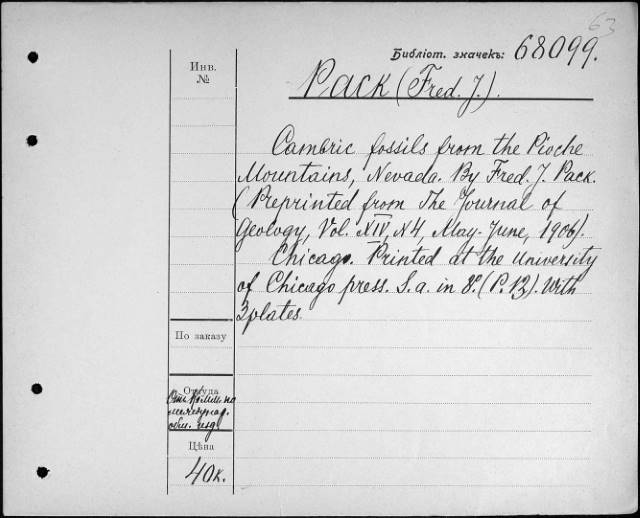 63
Библіот. значекъ: 68099.
Инв.
№
Pack (Fred. J.).
Cambric fossils from the Pioche
Mountains, Nevada. By Fred. J. Pack.
(Reprinted from The Journal of
Geology, Vol. XIV, N4, May-June, 1906).
Chicago. Printed at the University
of Chicago press. S. a. in 8º. (P. 12). With
3 plates.
По заказу
Откуда
От Комм. по
междунар.
обм. изд.
Цѣна
40 к.